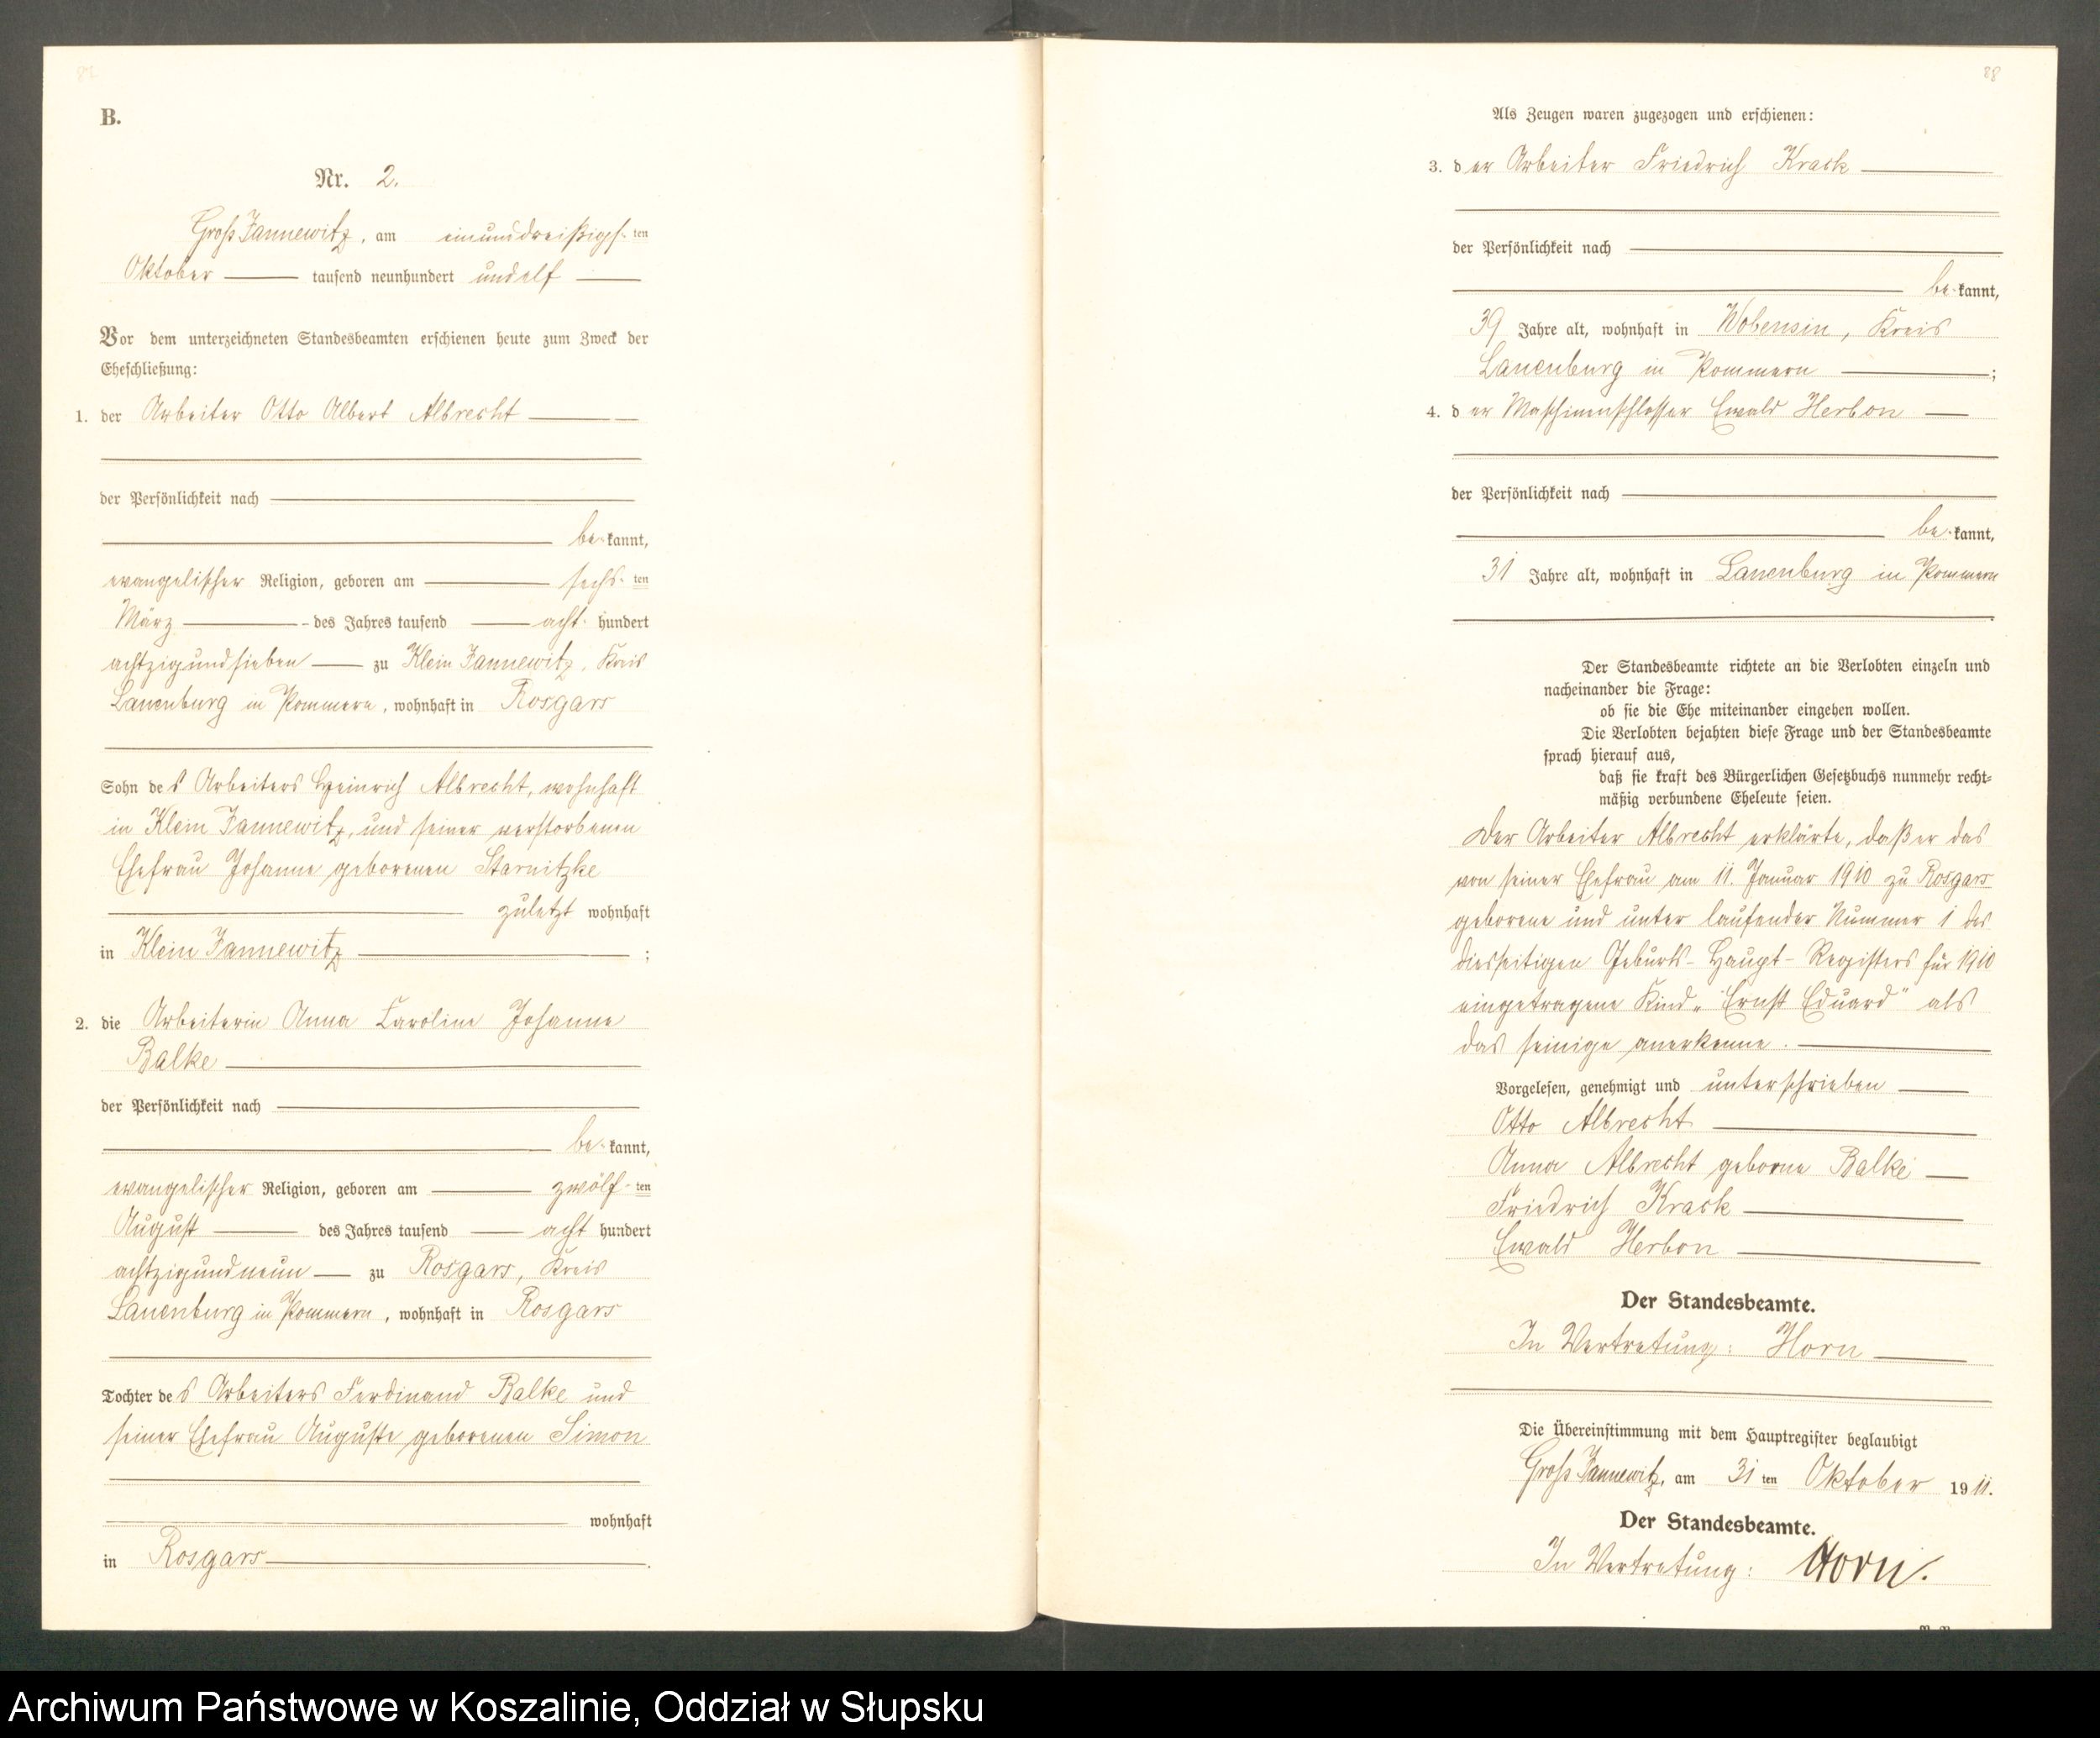 B.
Nr. 2.
Groß Jannewitz, am einunddreißigs-ten
Oktober tausend neunhundert undelf
Vor dem unterzeichneten Standesbeamten erschienen heute zum Zweck der
Eheschließung:
1. der Arbeiter Otto Albert Albrecht
der Persönlichkeit nach
be-kannt,
evangelischer Religion, geboren am sechs-ten
März des Jahres tausend acht-hundert
achtzigundsieben zu Klein Jannewitz, Kreis
Lauenburg in Pommern, wohnhaft in Rosgars
Sohn des Arbeiters Heinrich Albrecht, wohnhaft
in Klein Jannewitz, und seiner verstorbenen
Ehefrau Johanne geborenen Starnitzke
zuletzt wohnhaft
in Klein Jannewitz ;
2. die Arbeiterin Anna Karoline Johanne
Balke
der Persönlichkeit nach
be-kannt,
evangelischer Religion, geboren am zwölf-ten
August des Jahres tausend acht hundert
achtzigundneun zu Rosgars, Kreis
Lauenburg in Pommern, wohnhaft in Rosgars
Tochter des Arbeiters Ferdinand Balke und
seiner Ehefrau Auguste geborenen Simon
wohnhaft
in Rosgars .
88
Als Zeugen waren zugezogen und erschienen:
3. der Arbeiter Friedrich Krack
der Persönlichkeit nach
be-kannt,
39 Jahre alt, wohnhaft in Wobensin, Kreis
Lauenburg in Pommern ;
4. der Maschinenschlosser Ewald Herbon
der Persönlichkeit nach
be-kannt,
31 Jahre alt, wohnhaft in Lauenburg in Pommern
.
Der Standesbeamte richtete an die Verlobten einzeln und
nacheinander die Frage:
ob sie die Ehe miteinander eingehen wollen.
Die Verlobten bejahten diese Frage und der Standesbeamte
sprach hierauf aus,
daß sie kraft des Bürgerlichen Gesetzbuchs nunmehr recht-
mäßig verbundene Eheleute seien.
Der Arbeiter Albrecht erklärte, daß er das
von seiner Ehefrau am 11. Januar 1910 zu Rosgars
geborene und unter laufender Nummer 1 des
diesseitigen Geburts-Haupt-Registers für 1910
eingetragene Kind „Ernst Eduard" als
das seinige anerkenne.
Vorgelesen, genehmigt und unterschrieben
Otto Albrecht
Anna Albrecht geborne Balke
Friedrich Krack
Ewald Herbon
Der Standesbeamte.
In Vertretung: Horn
Die Übereinstimmung mit dem Hauptregister beglaubigt
Groß Jannewitz, am 31 ten Oktober 1911.
Der Standesbeamte.
In Vertretung: Horn.
Archiwum Państwowe w Koszalinie, Oddział w Słupsku